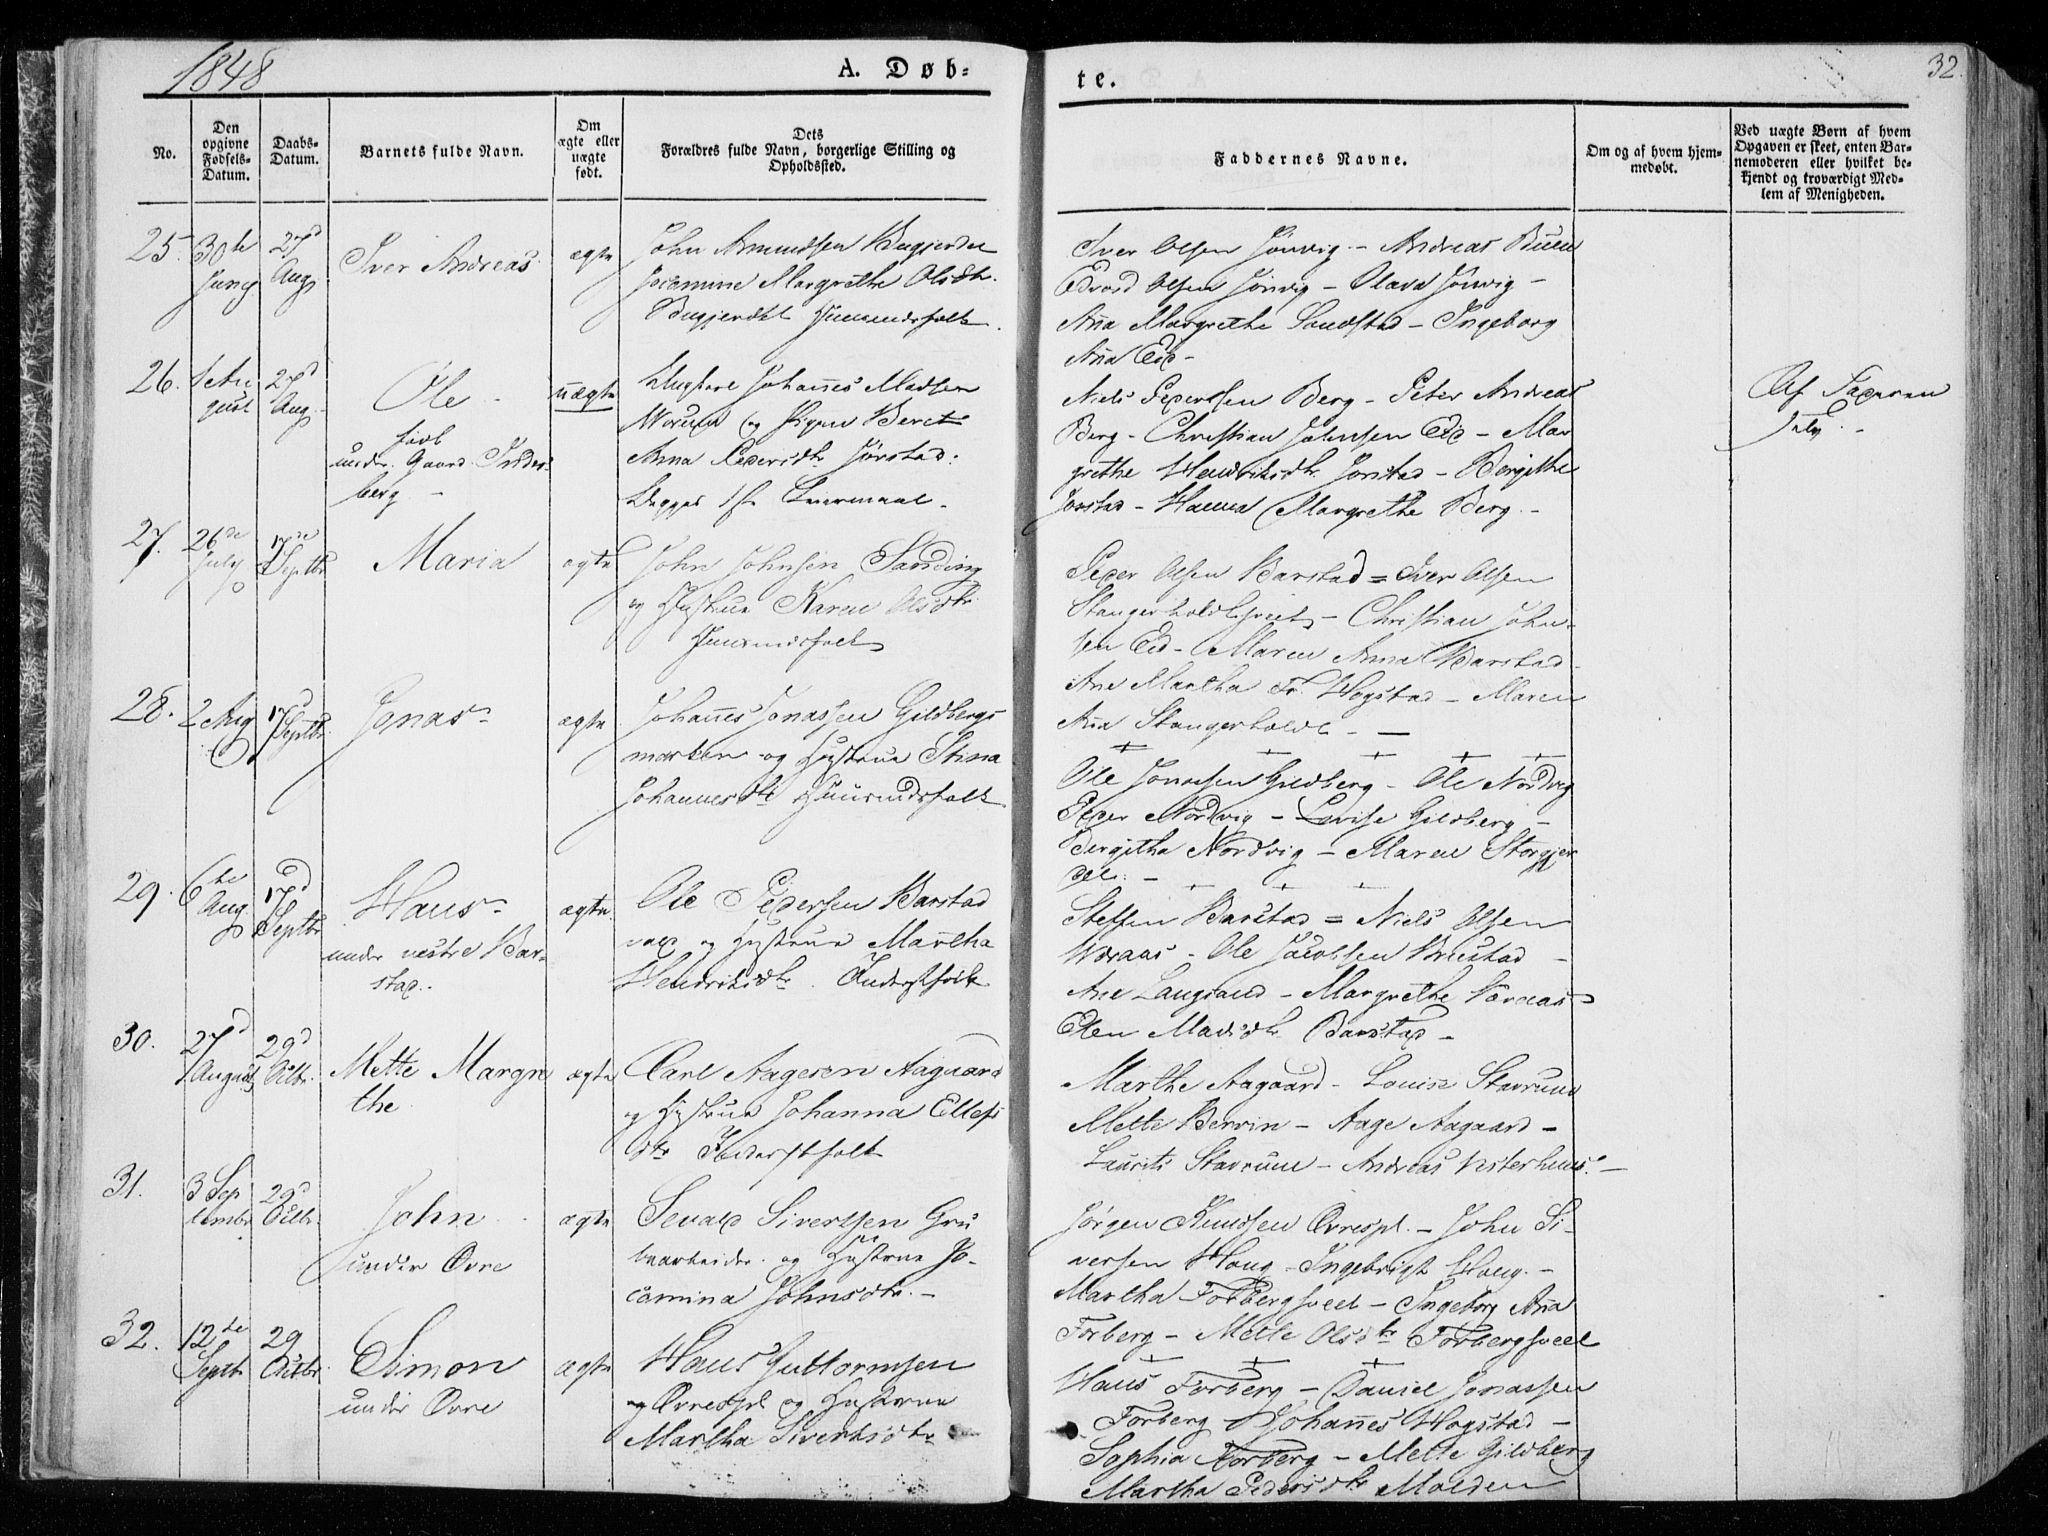 1848
A. Døb-
te.
32.
No.
Den
opgivne
Fødsels-
Datum.
Daabs-
Datum.
Barnets fulde Navn.
Om
ægte eller
uægte
født.
Dets
Forældres fulde Navn, borgerlige Stilling og
Opholdssted.
Faddernes Navne.
Om og af hvem hjem-
medøbt.
Ved uægte Børn af hvem
Opgaven er skeet, enten Bar-
nemoderen eller hvilket be-
kjendt og troværdigt Med-
lem af Menigheden.
25.
30te
Juny
27d
Aug
Iver Andreas
ægte
John Amundsen
Margrethe Olsdtr.
Huusmandsfolk
Iver Olsen Jønvig - Andreas
Edvard Olsen Jønvig - Olava Jønvig -
Ana Margrethe Sandstad - Ingeborg
Ana Eid -
26.
1 Au
gust
27d
Aug.
Ole -
født
under Gaard Inder-
berg. -
uægte
Ungkarl Johañes Madsen
og Pigen Beret
Anna Pedersdtr Jørstad.
Begges 1ste Leiermaal -
Niels Pedersen Berg - Peter Andreas
Berg - Christian Johnsen Eid - Mar
grethe Hendriksdtr Jørstad - Bergithe
Jørstad - Hanna Margrethe Berg. -
Af Faderen
27.
26de
July
17de
Septbr
Maria
ægte
John Johnsen
og Hustrue Karen Olsdtr.
Huusmandsfolk
Peder Olsen Barstad = Iver Olsen
- Christian John-
sen Eid - Maren Anna Barstad -
Ane Martha Fr. Hogstad - Maren
Ana Stangerholdt - -
28.
2 Aug
17d
Septbr.
Jonas
ægte
Johañes Jonassen Gildbergs
marken og Hustrue Stina
Johannesdtr Huusmandsfolk
Ole Jonassen Gildberg - Ole Nordvig
Peder Nordvig - Lovise Gildberg -
Bergitha Nordvig - Maren Storgjer
del. -
29.
6te
Aug.
17d
Septbr
Hans
under vestre Bar-
stad.
ægte.
Ole Pedersen Barstad
og Hustrue Martha
Hendriksdtr. Inderstfolk
Steffen Barstad = Niels Olsen
Woraas - Ole Jacobsen Barstad -
Ane Langsand - Margrethe
Elen Madsdtr Barstad -
30.
27d
August
29d
Octbr.
Mette Margre
the.
ægte
Carl Aagesen Aagaard
og Hustrue Johanna Ellefs
dtr Inderstfolk
Marthe Aagaard - Louise Stavrum
Mette Bervin - Aage Aagaard -
Laurits Stavrum - Andreas Vesterhuus. -
31.
3 Sep
tembr
29d
Octbr.
John
under Øvre
ægte
Sevald Sivertsen Gru
bearbeider og Hustrue Jo-
camina Johnsdtr. -
Jørgen Knudsen Øvrespl. - John Si-
versen Haug - Ingebrigt Haug. -
Martha Forbergsveel - Ingeborg Ana
Forberg - Mette Olsdtr Forbergsveel
32.
12te
Septbr
29
Octbr.
Simon
under Øvre
ægte
Hans Guttormsen
Øvrespl og Hustrue
Martha Sivertsdtr
Hans Forberg - Daniel Jonassen
Forberg - Johañes Hogstad -
Sophia Forberg - Mette Gildberg
Martha Pedersdtr Molden